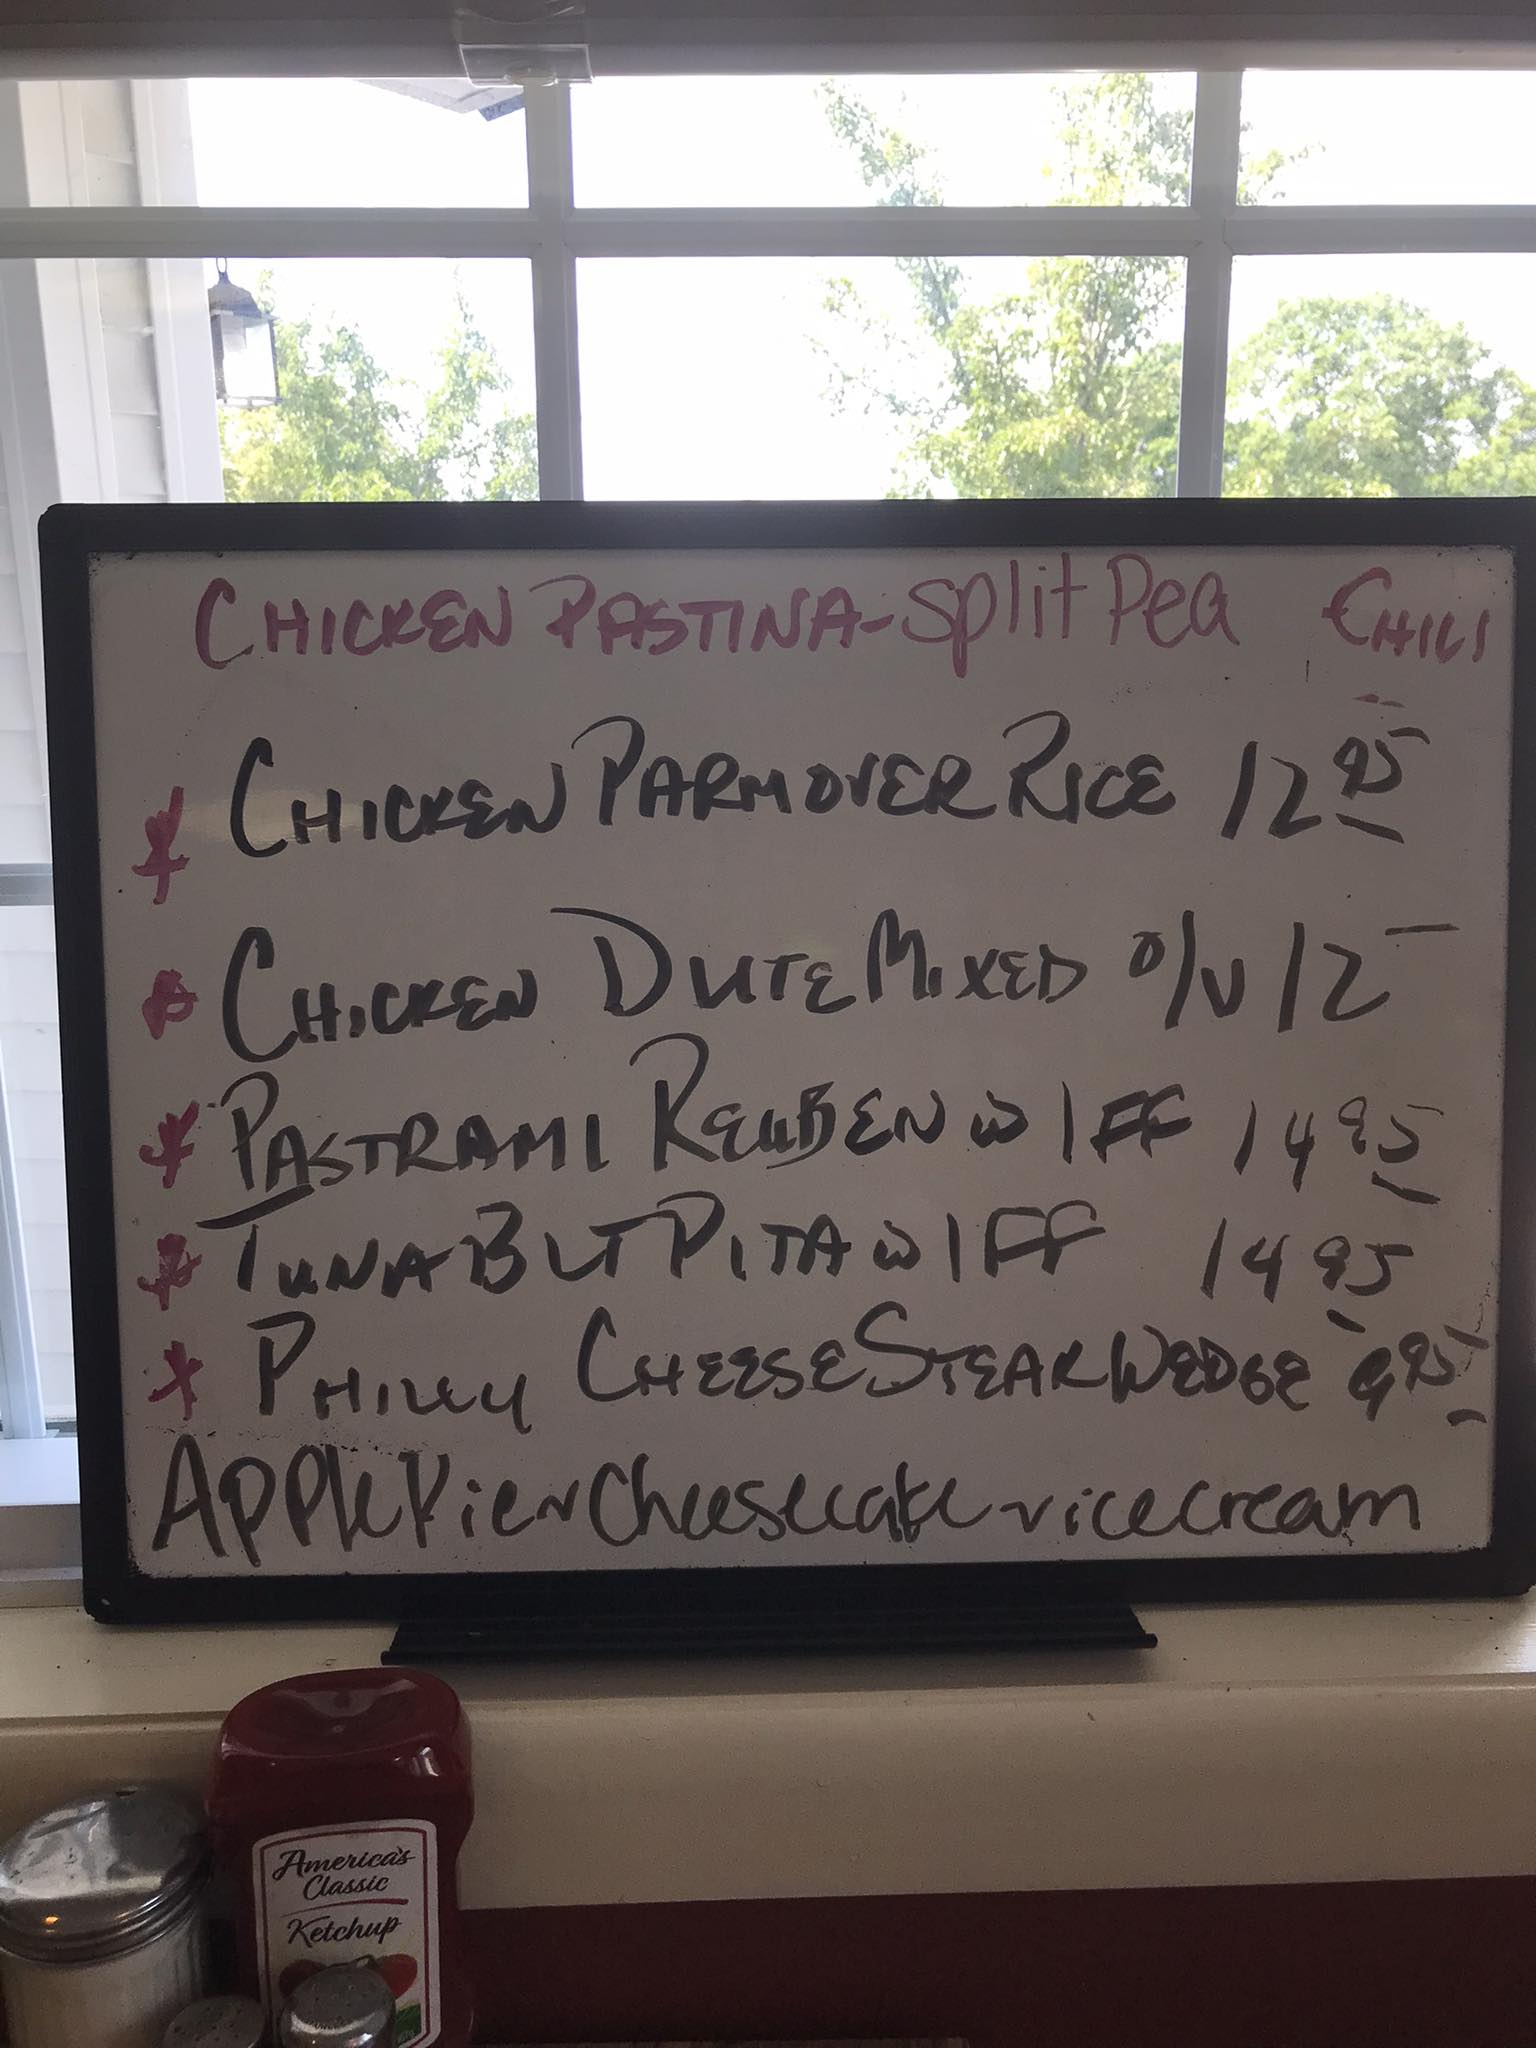 CHICKEN PASTINA - Split Pea CHILI
CHICKEN PARM OVER RICE 12 95
CHICKEN DUTE MIXED O/V 12 -
PASTRAMI REUBEN W I FF 14 95
TUNA BLT PITA W I FF 14 95
PHILLY CHEESE STEAK WEDGE 9 95
Apple Pie ~ Cheesecake ~ ice cream
America's
Classic
Ketchup